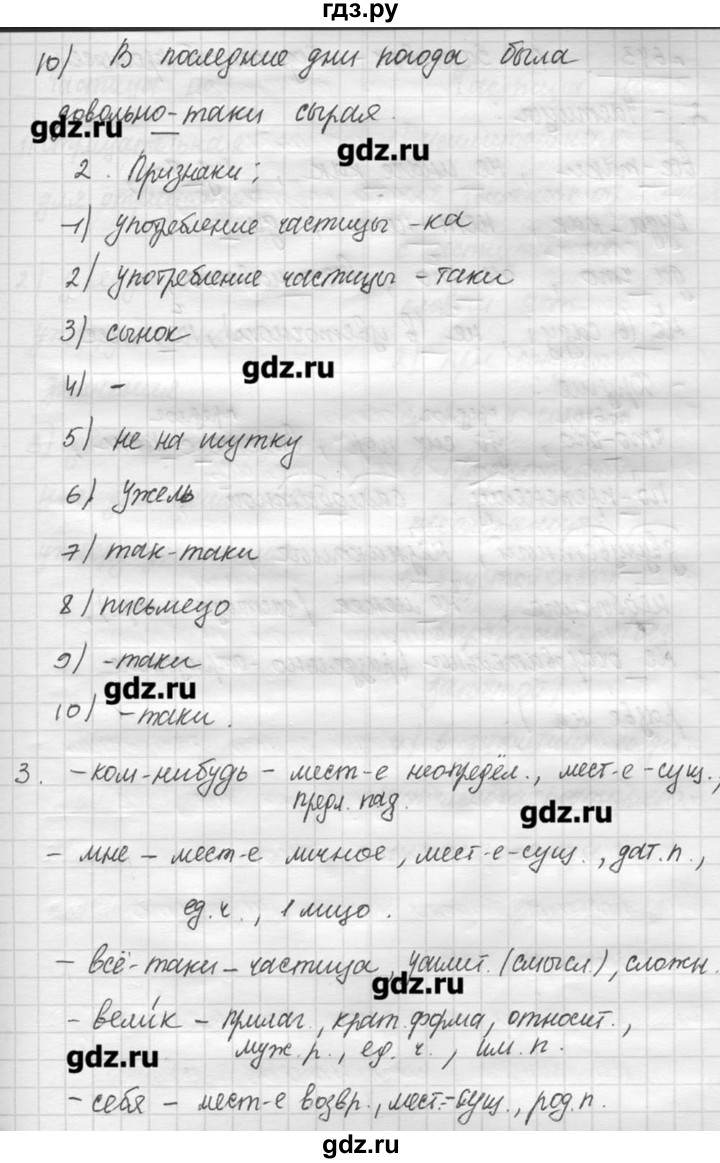 гдз.ру
10) В последние дни погода была
довольно-таки сырая.
gdz.ru
gdz.ru
2. Признаки:
1) употребление частицы -ка
2) употребление частицы -таки
3) сынок
gdz.ru
4) -
5) не на шутку
6) Ужель
7) так-таки
8) письмецо
9) -таки
gdz.ru
10) -таки.
3. - ком-нибудь - мест-е неопредел., мест-е-сущ.,
предл. пад.
gdz.ru
- мне - мест-е личное, мест-е-сущ., дат.п.,
ед.ч., 1 лицо.
- всё-таки - частица, усилит. (смысл.), сложн.
gdz.ru
- вели́к - прилаг., крат. форма, относит.,
муж.р., ед.ч., им.п.
gdz.ru
- себя - мест-е возвр., мест.-сущ., род.п.
gdz.ru
gdz.ru